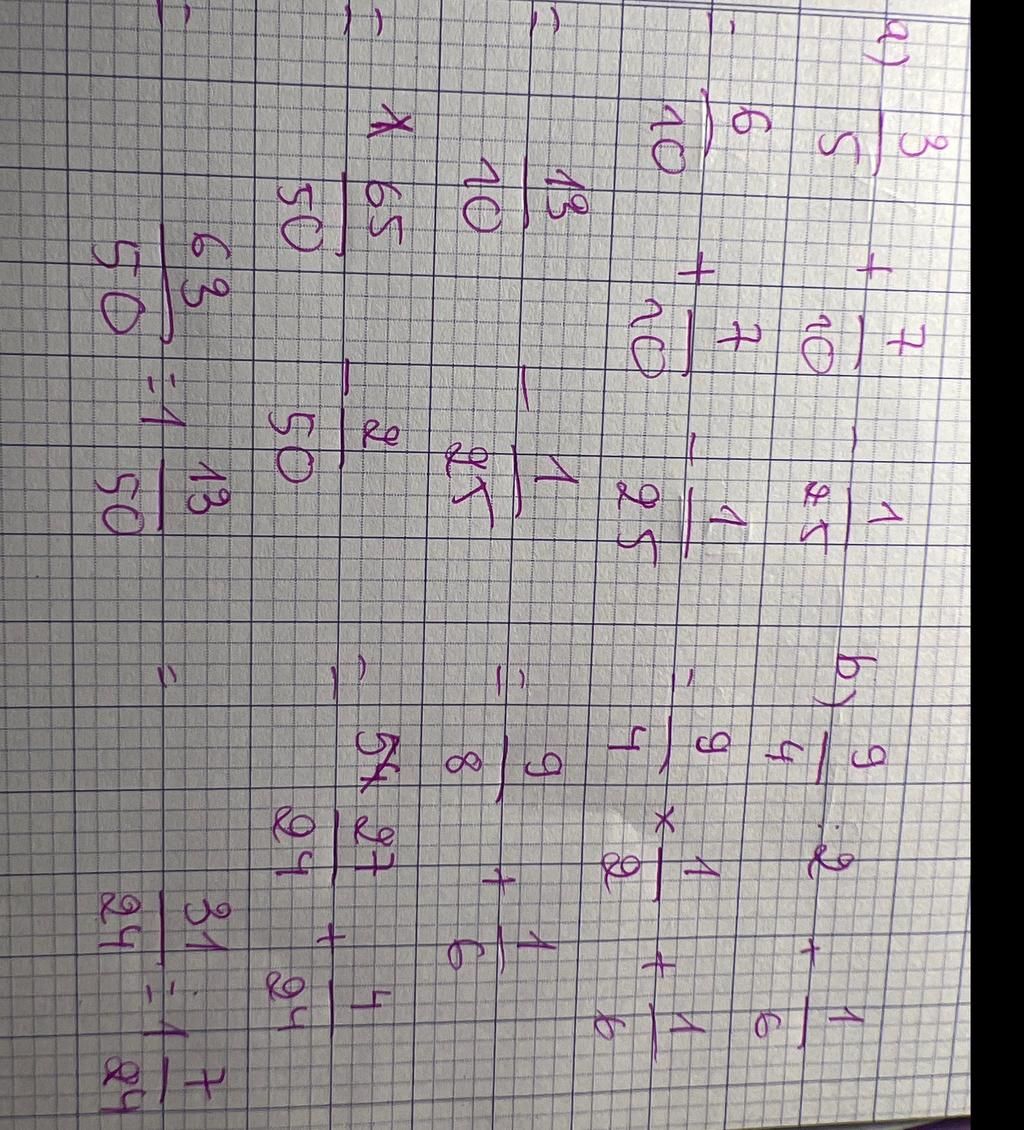 a) 3/5 + 7/10 - 1/25
= 6/10 + 7/10 - 1/25
= 13/10 - 1/25
= 65/50 - 2/50
= 63/50 = 1 13/50
b) 9/4 : 2 + 1/6
= 9/4 × 1/2 + 1/6
= 9/8 + 1/6
= 27/24 + 4/24
= 31/24 = 1 7/24